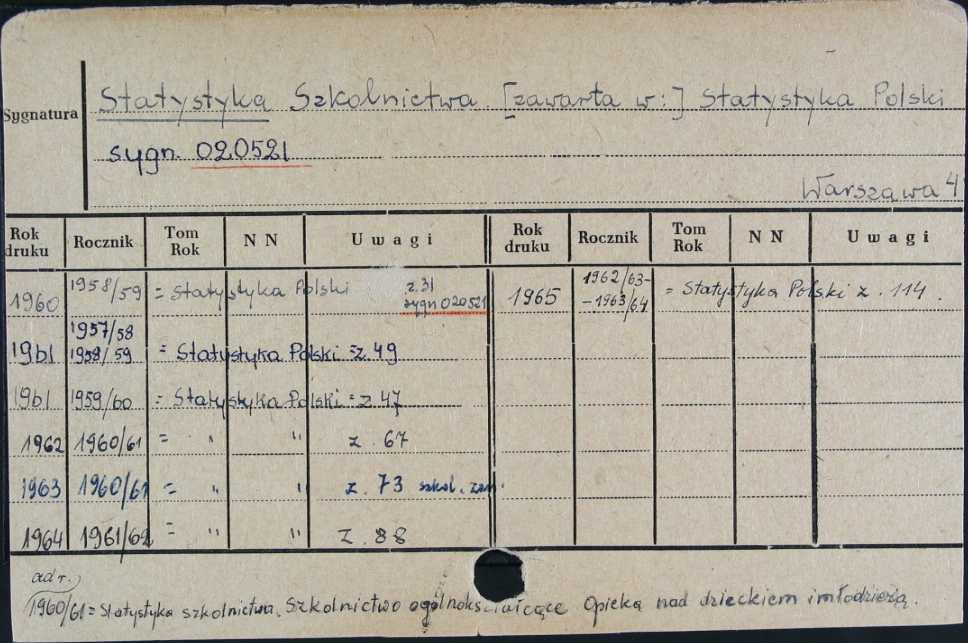 Sygnatura Statystyka Szkolnictwa [zawarta w:] Statystyka Polski
sygn. 020521
Warszawa 4
Rok druku Rocznik Tom Rok NN Uwagi Rok druku Rocznik Tom Rok NN Uwagi
1960 1958/59 = Statystyka Polski z.31 sygn 020521 1965 1962/63--1963/64 = Statystyka Polski z. 114.
1961 1957/58 1958/59 = Statystyka Polski = z 49
1961 1959/60 = Statystyka Polski = z 47
1962 1960/61 = " " z. 67
1963 1960/61 = " " z. 73 szkol. zaw.
1964 1961/62 = " " z. 88
ad r.
1960/61 = Statystyka szkolnictwa. Szkolnictwo ogólnokształcące Opieka nad dzieckiem i młodzieżą.